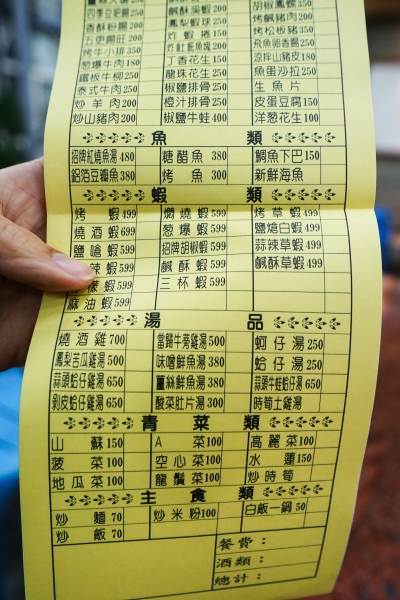 四季豆肥腸250 鹹酥溪蝦200 胡椒鳳螺350
香酥粉腸200 鳳梨蝦球250 烤鹹豬肉200
五更腸旺200 炸蝦捲 烤松板豬350
烤牛小排350 飛魚卵香腸250
葱爆牛肉180 丁香花生150 涼拌山豬皮180
鐵板牛柳250 龍珠花生250 魚蛋沙拉250
泰式牛肉250 椒鹽排骨250 生魚片
炒羊肉200 橙汁排骨250 皮蛋豆腐150
炒山豬肉200 椒鹽牛蛙400 洋葱花生100
魚類
招牌紅燒魚湯480 糖醋魚380 鯛魚下巴150
鋁箔豆瓣魚380 烤魚300 新鮮海魚
蝦類
烤蝦499 燜燒蝦599 烤草蝦499
燒酒蝦699 葱爆蝦599 鹽熗白蝦499
鹽熗蝦599 招牌胡椒蝦599 蒜辣草蝦499
辣蝦599 鹹酥蝦599 鹹酥草蝦499
檬蝦599 三杯蝦599
麻油蝦599
湯品
燒酒雞700 當歸牛蒡雞湯500 蚵仔湯250
鳳梨苦瓜雞湯500 味噌鮮魚湯380 蛤仔湯250
蒜頭蛤仔雞湯650 薑絲鮮魚湯380 蒜頭牛蛙蛤仔湯650
剝皮蛤仔雞湯650 酸菜肚片湯300 時筍土雞湯
青菜類
山蘇150 A菜100 高麗菜100
菠菜100 空心菜100 水蓮150
地瓜菜100 龍鬚菜100 炒時筍
主食類
炒麵70 炒米粉100 白飯一鍋50
炒飯70
餐費：
酒類：
總計：